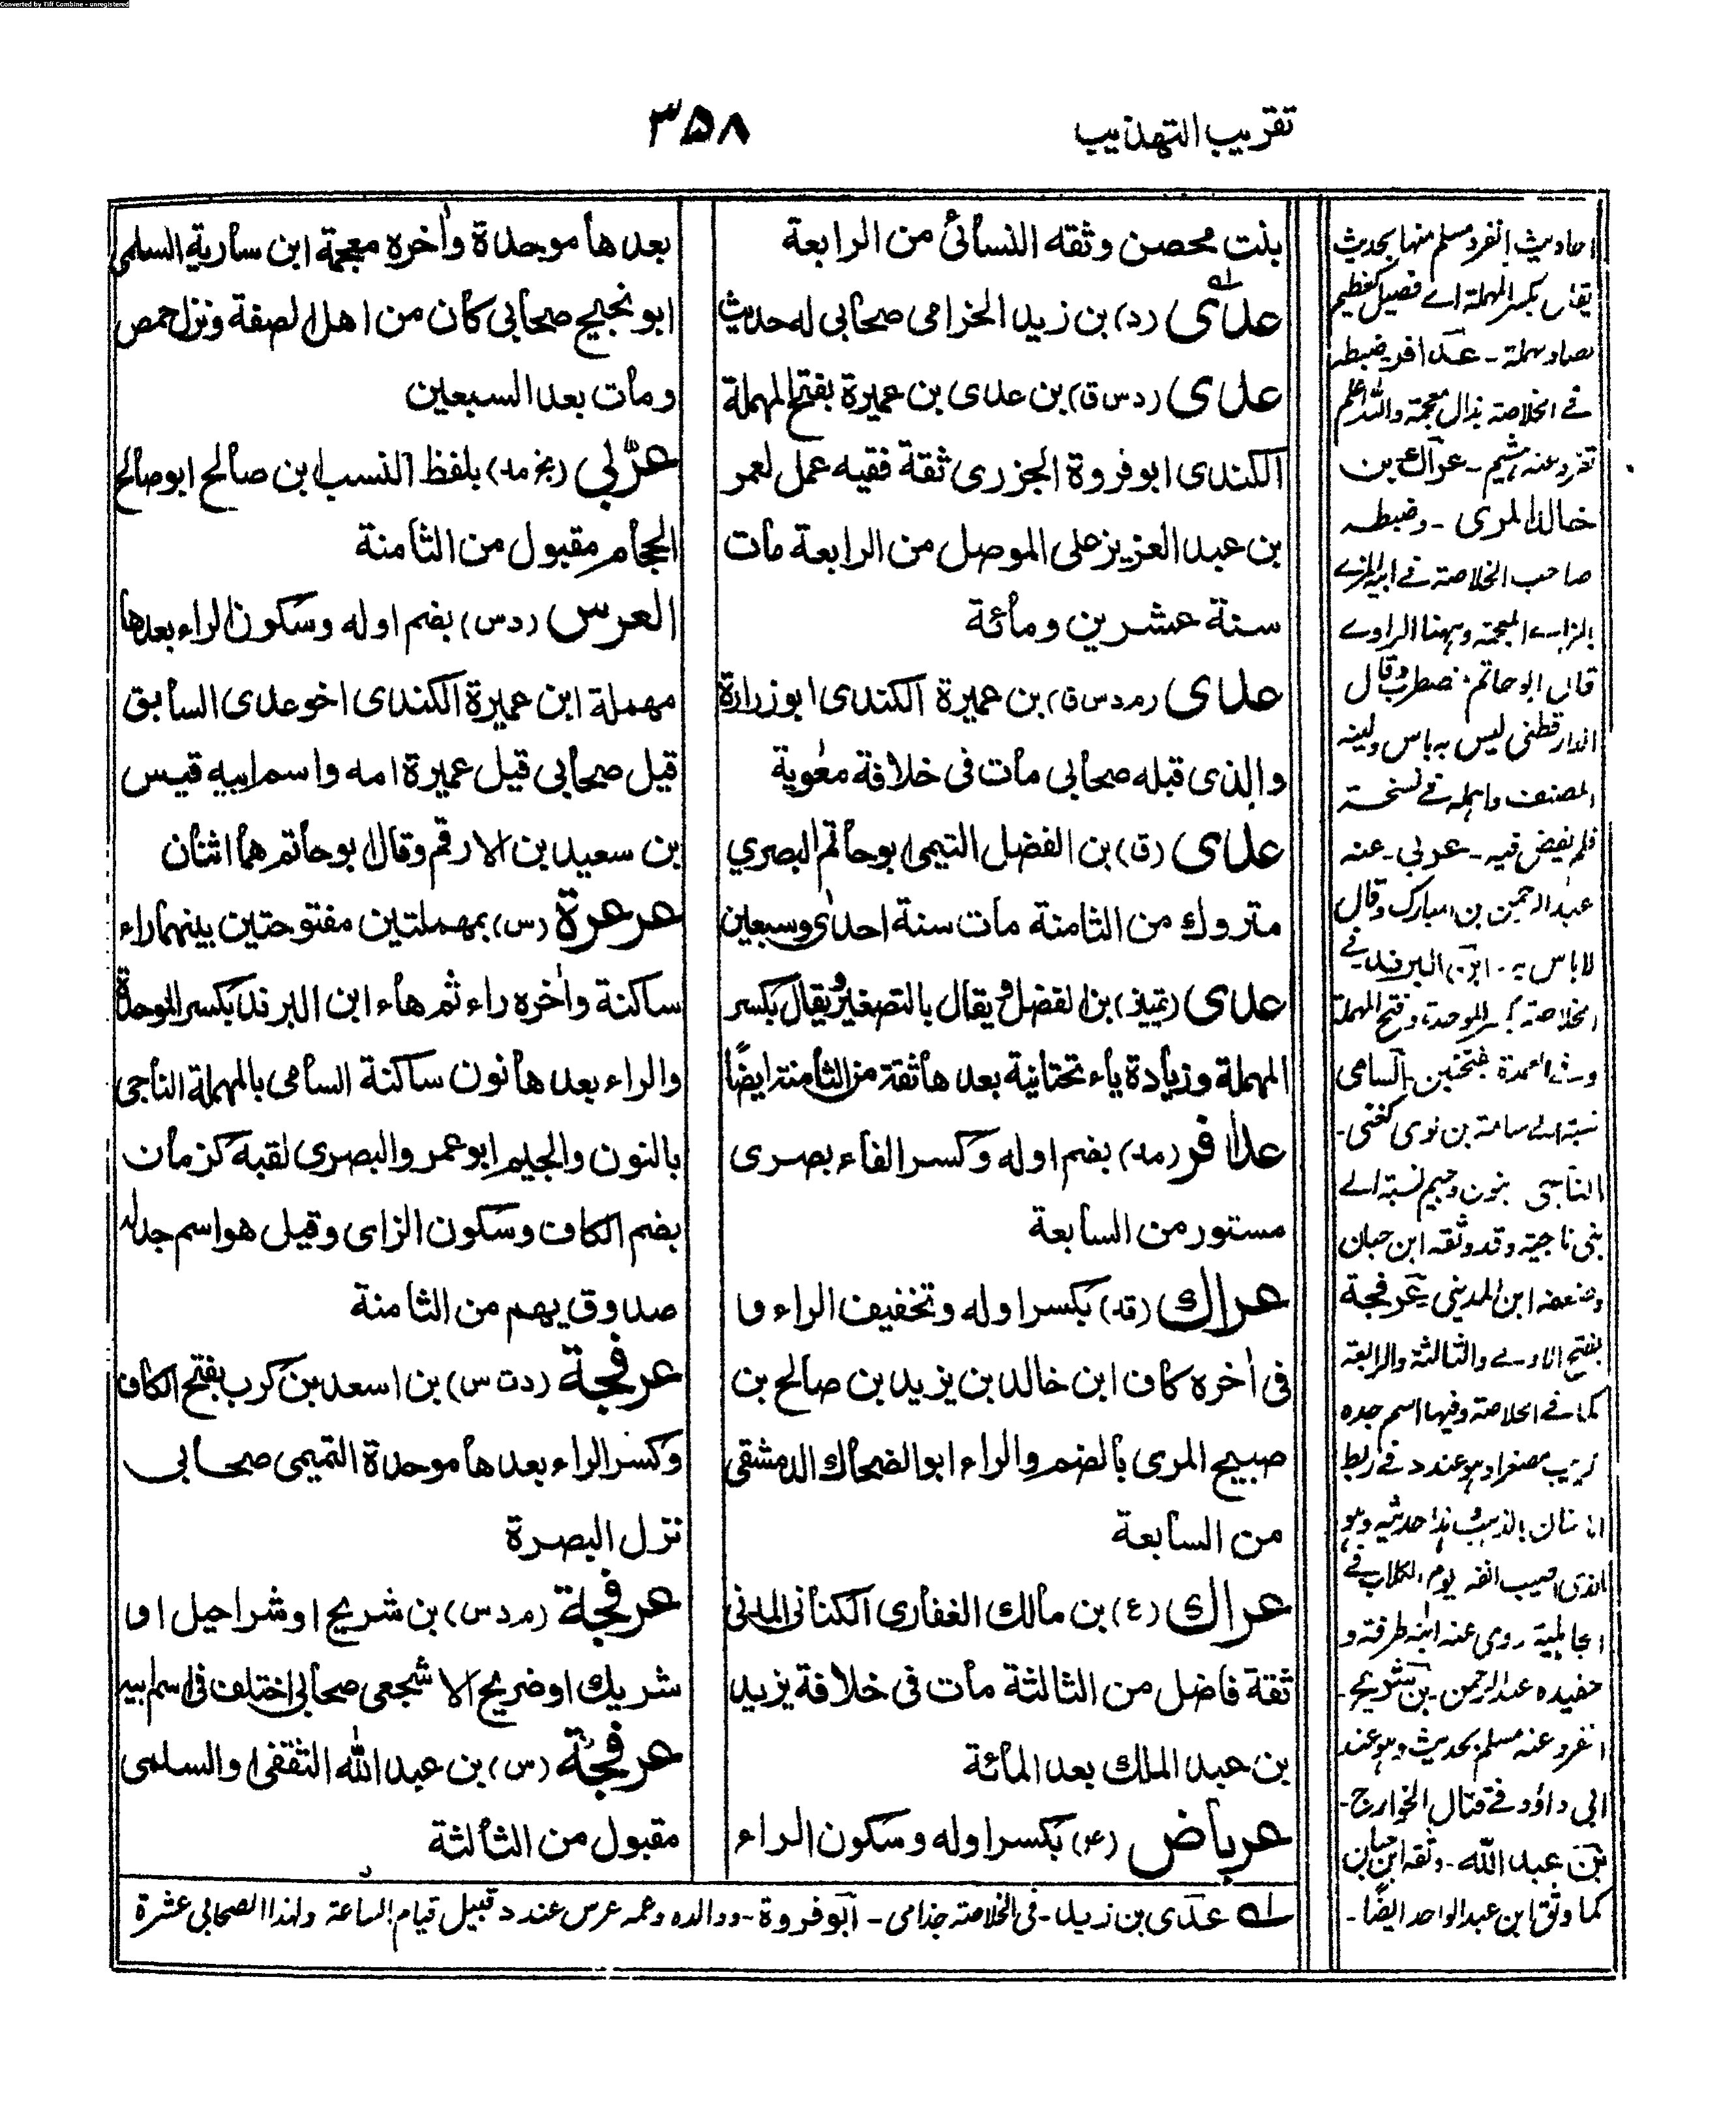 Converted by Tiff Combine - unregistered
تقريب التهذيب
۳۵۸
بنت محصن وثقه النسائى من الرابعة
عدى (د) بن زيد الخزامى صحابى له حديث
عدى (دس ق) بن عدى بن عميرة بفتح المهملة
الكندى ابو فروة الجزرى ثقة فقيه عمل لعمر
بن عبد العزيز على الموصل من الرابعة مات
سنة عشرين ومائة
عدى (م دس ق) بن عميرة الكندى ابو زرارة
والذى قبله صحابى مات فى خلافة معوية
عدى (ق) بن الفضل التيمى ابو حاتم البصري
متروك من الثامنة مات سنة احدى وسبعين
عدى (تمييز) بن الفضل ويقال بالتصغير ويقال بكسر
المهملة وزيادة ياء تحتانية بعدها ثقة من الثامنة ايضًا
عذافر (مد) بضم اوله وكسر الفاء بصرى
مستور من السابعة
عراك (قد) بكسر اوله وتخفيف الراء و
فى أخره كاف ابن خالد بن يزيد بن صالح بن
صبيح المرى بالضم والراء ابو الضحاك الدمشقى
من السابعة
عراك (ع) بن مالك الغفارى الكنانى المدنى
ثقة فاضل من الثالثة مات فى خلافة يزيد
بن عبد الملك بعد المائة
عرباض (عم) بكسر اوله وسكون الراء
بعدها موحدة وأخره معجمة ابن سارية السلمى
ابو نجيح صحابى كان من اهل الصفة ونزل حمص
ومات بعد السبعين
عربي (بخ مد) بلفظ النسب ابن صالح ابو صالح
الحجام مقبول من الثامنة
العرس (دس) بضم اوله وسكون الراء بعدها
مهملة ابن عميرة الكندى اخو عدى السابق
قيل صحابى قيل عميرة امه واسم ابيه قيس
بن سعيد بن الارقم وقال ابو حاتم هما اثنان
عرعرة (س) بمهملتين مفتوحتين بينهما راء
ساكنة وأخره راء ثم هاء ابن البرند بكسر الموحدة
والراء بعدها نون ساكنة السامى بالمهملة الناجى
بالنون والجيم ابو عمرو البصرى لقبه كزمان
بضم الكاف وسكون الزاى وقيل هو اسم جده
صدوق يهم من الثامنة
عرفجة (دت س) بن اسعد بن كرب بفتح الكاف
وكسر الراء بعدها موحدة التميمى صحابى
نزل البصرة
عرفجة (م دس) بن شريح او شراحيل او
شريك او ضريح الاشجعى صحابى اختلف فى اسم ابيه
عرفجة (س) بن عبد الله الثقفى او السلمى
مقبول من الثالثة
احاديث انفرد مسلم منها بحديث
بصاد مهملة - عذافر ضبطه
فى الخلاصة بذال معجمة والله اعلم
تفرد عنه هشيم - عراك بن
خالد المرى - وضبطه
صاحب الخلاصة فى ابيه المزى
بالزاى المعجمة وههنا الراوى
قال ابو حاتم مضطرب وقال
الدارقطنى ليس به باس ولينه
المصنف واهمله فى نسخة
عربي - عنه
عبد الرحمن بن المبارك وقال
لا باس به - ابن البرند فى
الخلاصة بكسر الموحدة وفتح المهملة
السامى
نسبة الى سامة بن لوى كغنى -
الناجى بنون وجيم نسبة الى
بنى ناجية وقد وثقه ابن حبان
وضعفه ابن المدينى عرفجة
بفتح الاولى والثالثة والرابعة
كما فى الخلاصة وفيها اسم جده
كريب مصغرا وهو عند د فى ربط
الاسنان بالذهب هذا حديثه وهو
الذى اصيب انفه يوم الكلاب فى
الجاهلية روى عنه ابنه طرفة و
حفيده عبد الرحمن - بن شريح -
انفرد عنه مسلم بحديث وهو عند
ابى داؤد فى قتال الخوارج -
بن عبد الله - وثقه ابن حبان
كما وثق ابن عبد الواحد ايضًا -
له عدى بن زيد - فى الخلاصة جذامى - ابو فروة - ووالده وعمه عرس عند د قبيل قيام الساعة ولهذا الصحابى عشرة